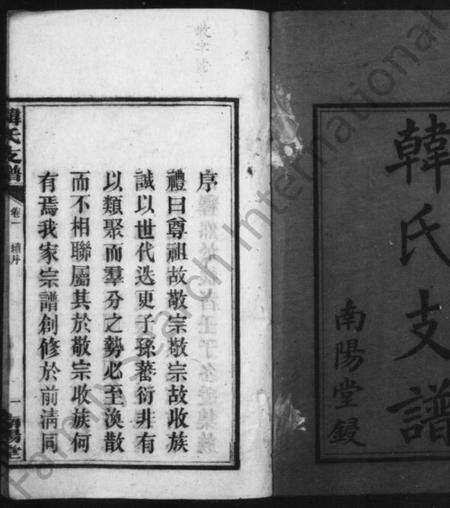 韓氏支譜
南陽堂鋟
序
禮曰尊祖故敬宗敬宗故收族
誠以世代迭更子孫蕃衍非有
以類聚而羣分之勢必至渙散
而不相聯屬其於敬宗收族何
有焉我家宗譜創修於前清同
韓氏支譜
卷一
續序
一
南陽堂
Family Search International